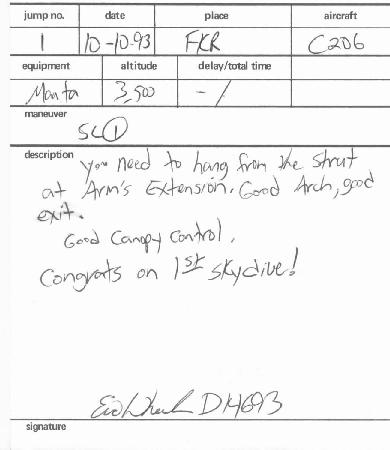 jump no. date place aircraft
1 10-10-93 FKR C206
equipment altitude delay/total time
Manta 3,500 - /
maneuver
SL 1
description you need to hang from the strut
at Arm's Extension. Good Arch, good
exit.
Good Canopy Control.
Congrats on 1st skydive!
D14693
signature